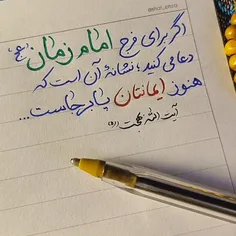 اگر برای فرج امام زمان (عج)
دعا می کنید؛ نشانهٔ آن است که
هنوز ایمانتان پا بر جاست...
آیت الله بهجت (ره)